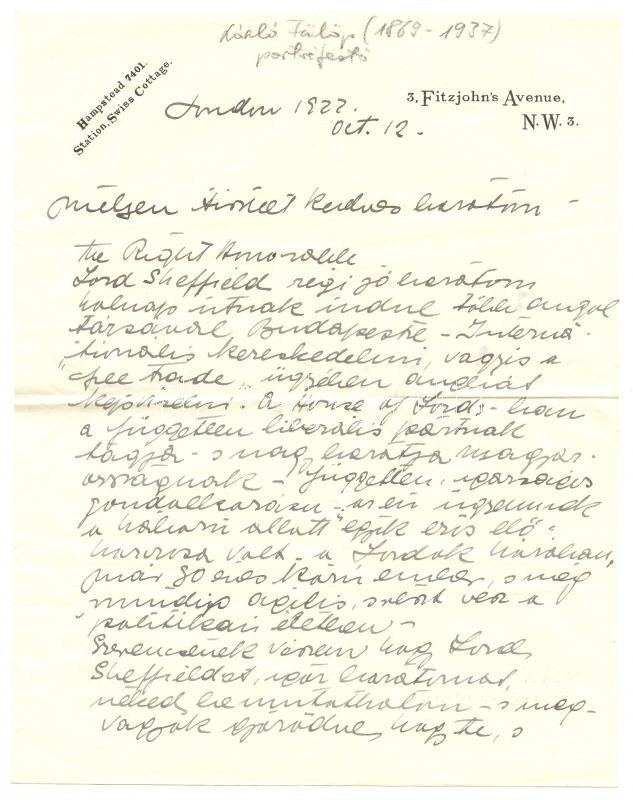 László Fülöp (1869-1937)
portréfestő
Hampstead 7401.
Station, Swiss Cottage.
3, Fitzjohn's Avenue,
N.W. 3.
London 1922.
Oct. 12.
Mélyen tisztelt kedves barátom -
the Right Honorable
Lord Sheffield régi jó barátom
holnap útnak indul több angol
társával Budapestre - Interná-
tionális kereskedelmi, vagyis a
"free trade" ügyében Angliát
képviselni. A House of Lords-ban
a független liberális pártnak
tagja - s nagy barátja Magyar-
országnak - független, igazságos
gondolkozású - a mi ügyünknek
a háború alatt egyik erős elő-
harcosa volt - a Lordok házában,
már 80 éves körüli ember, s még
mindig agilis, s részt vesz a
politikai életben -
Szerencsének veszem hogy Lord
Sheffieldet, igaz barátomat,
néked bemutathatom - s meg-
vagyok győződve, hogy te, s